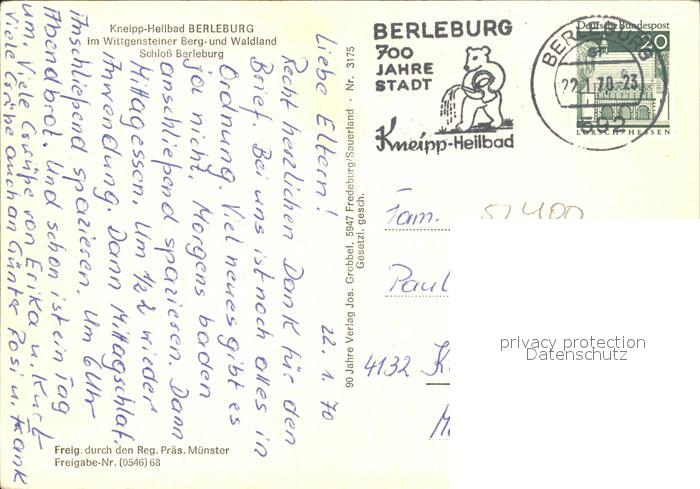 Kneipp-Heilbad BERLEBURG
im Wittgensteiner Berg- und Waldland
Schloß Berleburg
22. 1. 70
Liebe Eltern!
Recht herzlichen Dank für den
Brief. Bei uns ist noch alles in
Ordnung. Viel neues gibt es
ja nicht. Morgens baden
anschliepend spazieren. Dann
Mittagessen. Um 1/2 wieder
Anwendung. Dann Mittagschlaf.
Anschliepend spazieren. Um 6 Uhr
Abendbrot. Und schon ist ein Tag
um. Viele Grüße von Erika u. Kurt
Viele Grüße auch an Günter Rosi u. Frank
Freig. durch den Reg. Präs. Münster
Freigabe-Nr. (0546) 68
90 Jahre Verlag Jos. Grobbel, 5947 Fredeburg/Sauerland · Nr. 3175
Gesetzl. gesch.
BERLEBURG
700
JAHRE
STADT
Kneipp-Heilbad
BERLEBURG
22.1.70.23
592
Deutsche Bundespost
20
LORSCH/HESSEN
Fam.
Paul
4132 K
privacy protection
Datenschutz